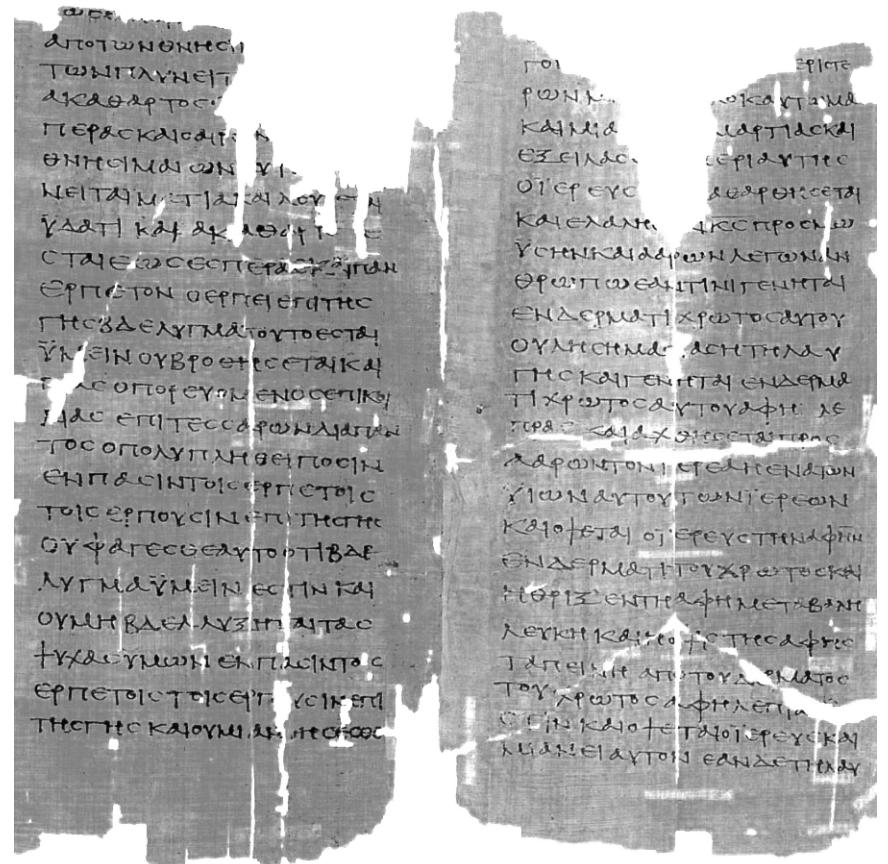 ΑΠΟΤΩΝΘΝΗϹΙ
ΤΩΝΠΛΥΝΕΙΤ
ΑΚΑΘΑΡΤΟϹ
ΠΕΡΑϹΚΑΙΟΑΙΡ
ΘΝΗϹΙΜΑΙΩΝ
ΝΕΙΤΑΙ ΤΙΑΚΑΙΛΟΥ
ΫΔΑΤΙΚΑΙΑΚΑΘΑΡΤ Ϲ Ε
ϹΤΑΙΕΩϹΕϹΠΕΡΑϹΚΑΙΠΑΝ
ΕΡΠΕΤΟΝΟΕΡΠΕΙΕΠΙΤΗϹ
ΓΗϹΒΔΕΛΥΓΜΑΤΟΥΤΟΕϹΤΑΙ
ΫΜΕΙΝΟΥΒΡΟΘΗϹΕΤΑΙΚΑΙ
ΑϹΟΠΟΡΕΥΟΜΕΝΟϹΕΠΙΚΟΙ
ΛΙΑϹΕΠΙΤΕϹϹΑΡΩΝΔΙΑΠΑΝ
ΤΟϹΟΠΟΛΥΠΛΗΘΕΙΠΟϹΙΝ
ΕΝΠΑϹΙΝΤΟΙϹΕΡΠΕΤΟΙϹ
ΤΟΙϹΕΡΠΟΥϹΙΝΕΠΙΤΗϹΓΗϹ
ΟΥΦΑΓΕϹΘΕΑΥΤΟΟΤΙΒΔΕ
ΛΥΓΜΑΫΜΕΙΝΕϹΤΙΝΚΑΙ
ΟΥΜΗΒΔΕΛΛΥΞΗΤΑΙΤΑϹ
ΨΥΧΑϹΥΜΩΝΕΝΠΑϹΙΝΤΟΙϹ
ΕΡΠΕΤΟΙϹΤΟΙϹΕΡΠ ΥϹΙΝΕΠΙ
ΤΗϹΓΗϹΚΑΙΟΥΜΙΑΝ ΗϹΕϹΘΕ
ΓΟΙ ΕΡΙϹΤΕ
ΡΩΝΝ ΟΚΑΥΤΩΜΑ
ΚΑΙΜΙΑ ΜΑΡΤΙΑϹΚΑΙ
ΕΞΕΙΛΑϹ ΕΡΙΑΥΤΗϹ
ΟΪΕΡΕΥϹ ΑΘΑΡΘΗϹΕΤΑΙ
ΚΑΙΕΛΑΛΗ ΚϹΠΡΟϹΜΩ
ΫϹΗΝΚΑΙΑΑΡΩΝΛΕΓΩΝΑΝ
ΘΡΩΠΩΕΑΝΤΙΝΙΓΕΝΗΤΑΙ
ΕΝΔΕΡΜΑΤΙΧΡΩΤΟϹΑΥΤΟΥ
ΟΥΛΗϹΗΜΑϹ ΑϹΗΤΗΛΑΥ
ΓΗϹΚΑΙΓΕΝΗΤΑΙΕΝΔΕΡΜΑ
ΤΙΧΡΩΤΟϹΑΥΤΟΥΑΦΗ ΛΕ
ΠΡΑϹΚΑΙΑΧΘΗϹΕΤΑΙΠΡΟϹ
ΑΑΡΩΝΤΟΝΙΕΡΕΑΗΕΝΑΤΩΝ
ΫΙΩΝΑΥΤΟΥΤΩΝΪΕΡΕΩΝ
ΚΑΙΟΨΕΤΑΙΟΪΕΡΕΥϹΤΗΝΑΦΗΝ
ΕΝΔΕΡΜΑΤΙΤΟΥΧΡΩΤΟϹΚΑΙ
ΗΘΡΙΞΕΝΤΗΑΦΗΜΕΤΑΒΑΛΗ
ΛΕΥΚΗΚΑΙΗΟΨΙϹΤΗϹΑΦΗϹ
ΤΑΠΕΙΝΗΑΠΟΤΟΥΔΕΡΜΑΤΟϹ
ΤΟΥΧΡΩΤΟϹΑΦΗΛΕΠΡΑ
ϹΤΙΝΚΑΙΟΨΕΤΑΙΟΪΕΡΕΥϹΚΑΙ
ΜΙΑΝΕΙΑΥΤΟΝΕΑΝΔΕΤΗΛΑΥ